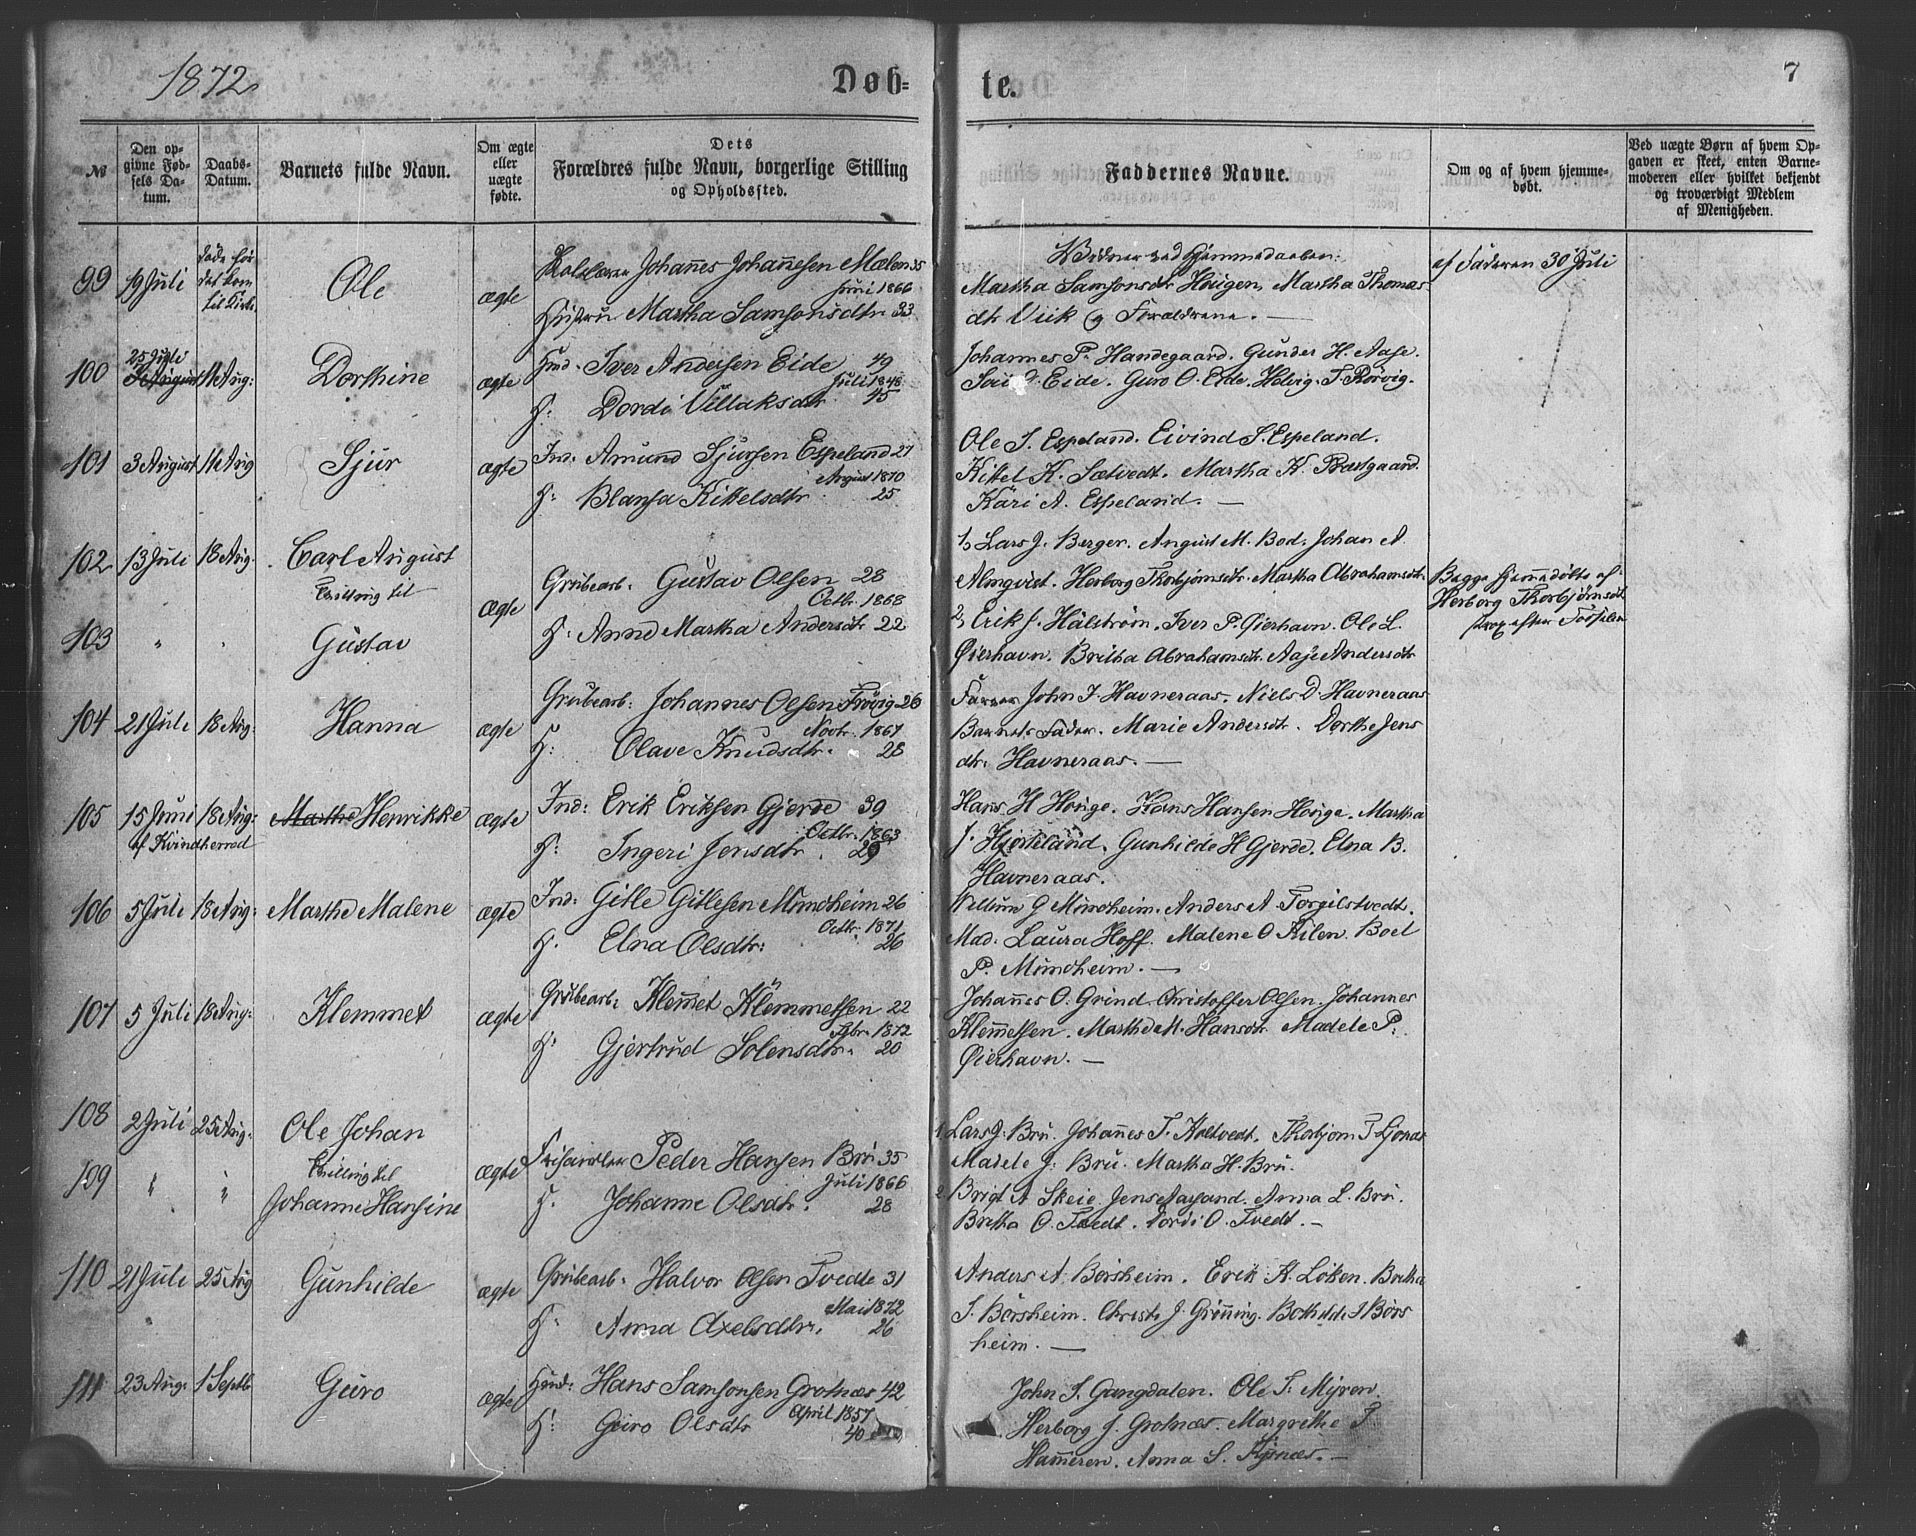 1872
Døb-
te.
7
№
Den op-
givne Fød-
sels Da-
tum.
Daabs-
Datum.
Barnets fulde Navn.
Om ægte
eller
uægte
fødte.
Dets
Forældres fulde Navn, borgerlige Stilling
og Opholdssted.
Faddernes Navne.
Om og af hvem hjemme-
døbt.
Ved uægte Børn af hvem Op-
gaven er skeet, enten Barne-
moderen eller hvilket bekjendt
og troværdigt Medlem
af Menigheden.
99
19 Juli
døde før
det kom
til Kirke
Ole
ægte
Johannes Johannesen Mælen 35
Juni 1866
Hustru Martha Samsonsdtr 33
Vidner ved Hjemmedaaben:
Martha Samsonsdtr Haugen, Martha Thomas-
dtr Viik og Forældrene. —
af Faderen 30 Juli
100
25 Juli
11 Aug:
Dorthine
ægte
Hmd. Iver Andersen Eide 49
Juli 1848
H: Dordi Villaksdtr 45
Johannes P. Handegaard. Gunder H. Aase.
D. Eide. Guro O. Eide. Helvig T. Rørvig.
101
3 August
11 Aug
Sjur
ægte
Ind: Amund Sjursen Espeland 27
August 1870
H: Blansa Kittelsdtr 25
Ole S. Espeland. Eivind S. Espeland.
Kittel K. Sætvedt. Martha K. Præstgaard.
Kari A. Espeland. —
102
13 Juli
18 Aug.
Carl August
Tvilling til
ægte
Grubearb: Gustav Olsen 28
Octbr. 1868
H: Anne Martha Andersdtr 22
1, Lars J. Berger. August M. Bod. Johan A.
Almqvist. Herborg Thorbjørnsdtr. Martha Abrahamsdtr
Begge hjemmedøbte af
Herborg Thorbjørnsdtr
strax efter Fødselen
103
"
"
Gustav
2, Erik J. Hålstrøm. Iver P. Øierhavn. Ole L.
Øierhavn. Britha Abrahamsdtr. Aase Andersdtr
104
21 Juli
18 Aug.
Hanna
ægte
Grubearb: Johannes Olsen Frøvig 26
Novbr. 1867
H: Olave Knudsdtr. 28
John J. Havneraas. Niels D. Havneraas
Barnets Fader. Marie Andersdtr. Dorthe Jens
dtr. Havneraas. —
105
15 Juni
18 Aug:
af Kvindherred
Marthe Henrikke
ægte
Ind: Erik Eriksen Gjerde 39
Octbr. 1863
H: Ingeri Jensdtr. 29
Hans H Hauge. Hans Hansen Hauge. Martha
J. Hjorteland. Gunhilde H Gjerde. Elna B.
Havneraas.
106
5 Juli
18 Aug:
Marthe Malene
ægte
Ind: Gitle Gitlesen Mundheim 26
Octbr. 1871
H. Elna Olsdtr: 26
Villum G Mundheim. Anders A. Torgilstvedt.
Mad. Laura Hoff. Malene O Kilen. Boel
P. Mundheim. —
107
5 Juli
18 Aug:
Klemmet
ægte
Grubearb: Klemmet Klemmetsen 22
1872
H. Gjertrud Solensdtr. 20
Johannes O. Grind. Christoffer Olsen. Johannes
Klemetsen. Marthe M. Hansdtr. Madele P.
Øierhavn. —
108
2 Juli
25 Aug.
Ole Johan
Tvilling til
ægte
Peder Hansen Bru 35
Juli 1866
H. Johanne Olsdtr. 28
1. Lars J. Bru. Johannes T. Holtvedt. Thorbjørn T
Madele J. Bru. Martha H. Bru.
109
"
"
Johanne Hansine
2. Brigt A Skeie. Jens Aarsand. Anna L. Bru.
Britha O. Tvedt. Dordi O. Tvedt. —
110
21 Juli
25 Aug
Gunhilde
ægte
Grubearb. Halvor Olsen Tvedte 31
Mai 1872
H. Anna Axelsdtr. 26
Anders A. Børsheim. Erik A. Løken. Britha
S. Børsheim. Christi J. Grønning. Bothilde S Børs
heim. —
111
23 Aug:
1 Septb
Guro
ægte
Hmd: Hans Samsonsen Grotnæs 42
April 1857
H: Guro Olsdtr 40
John S. Gangdalen. Ole T. Myren.
Herborg J. Grotnæs. Margrethe T.
Hammeren. Anna S. Fysnæs. —